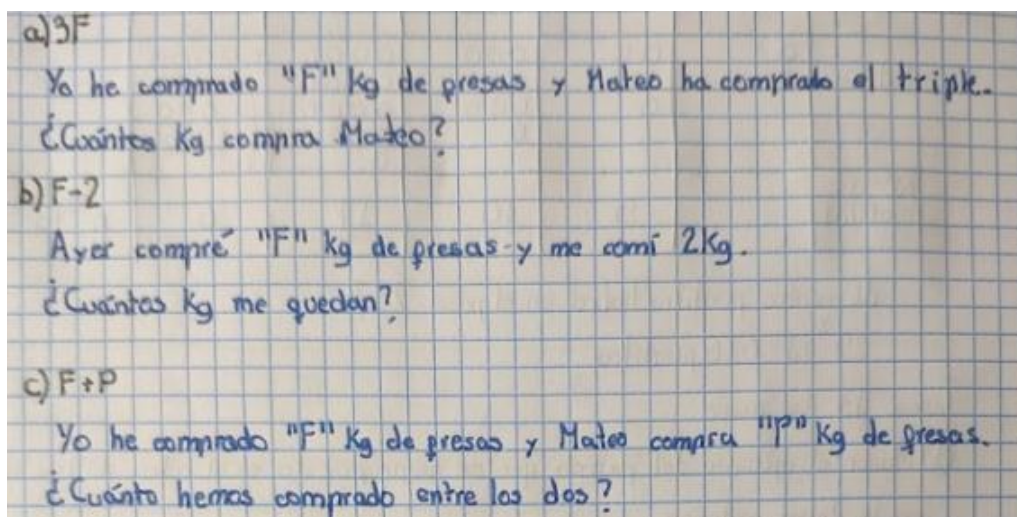 a) 3F
Yo he comprado "F" Kg de fresas y Mateo ha comprado el triple.
¿Cuántos Kg compra Mateo?
b) F-2
Ayer compré "F" kg de fresas y me comí 2Kg.
¿Cuántos Kg me quedan?
c) F+P
Yo he comprado "F" Kg de fresas y Mateo compra "P" Kg de fresas.
¿Cuánto hemos comprado entre los dos?